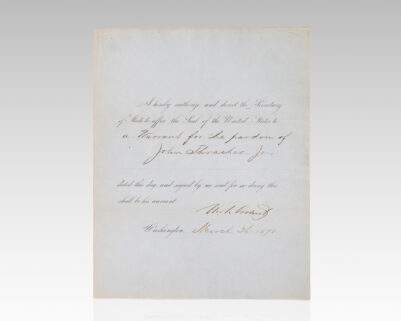 I hereby authorize and direct the Secretary
of State to affix the Seal of the United States to
a Warrant for the pardon of
John Thrasher Jr.
dated this day, and signed by me and for so doing this
shall be his warrant.
U.S. Grant
Washington March 26, 187